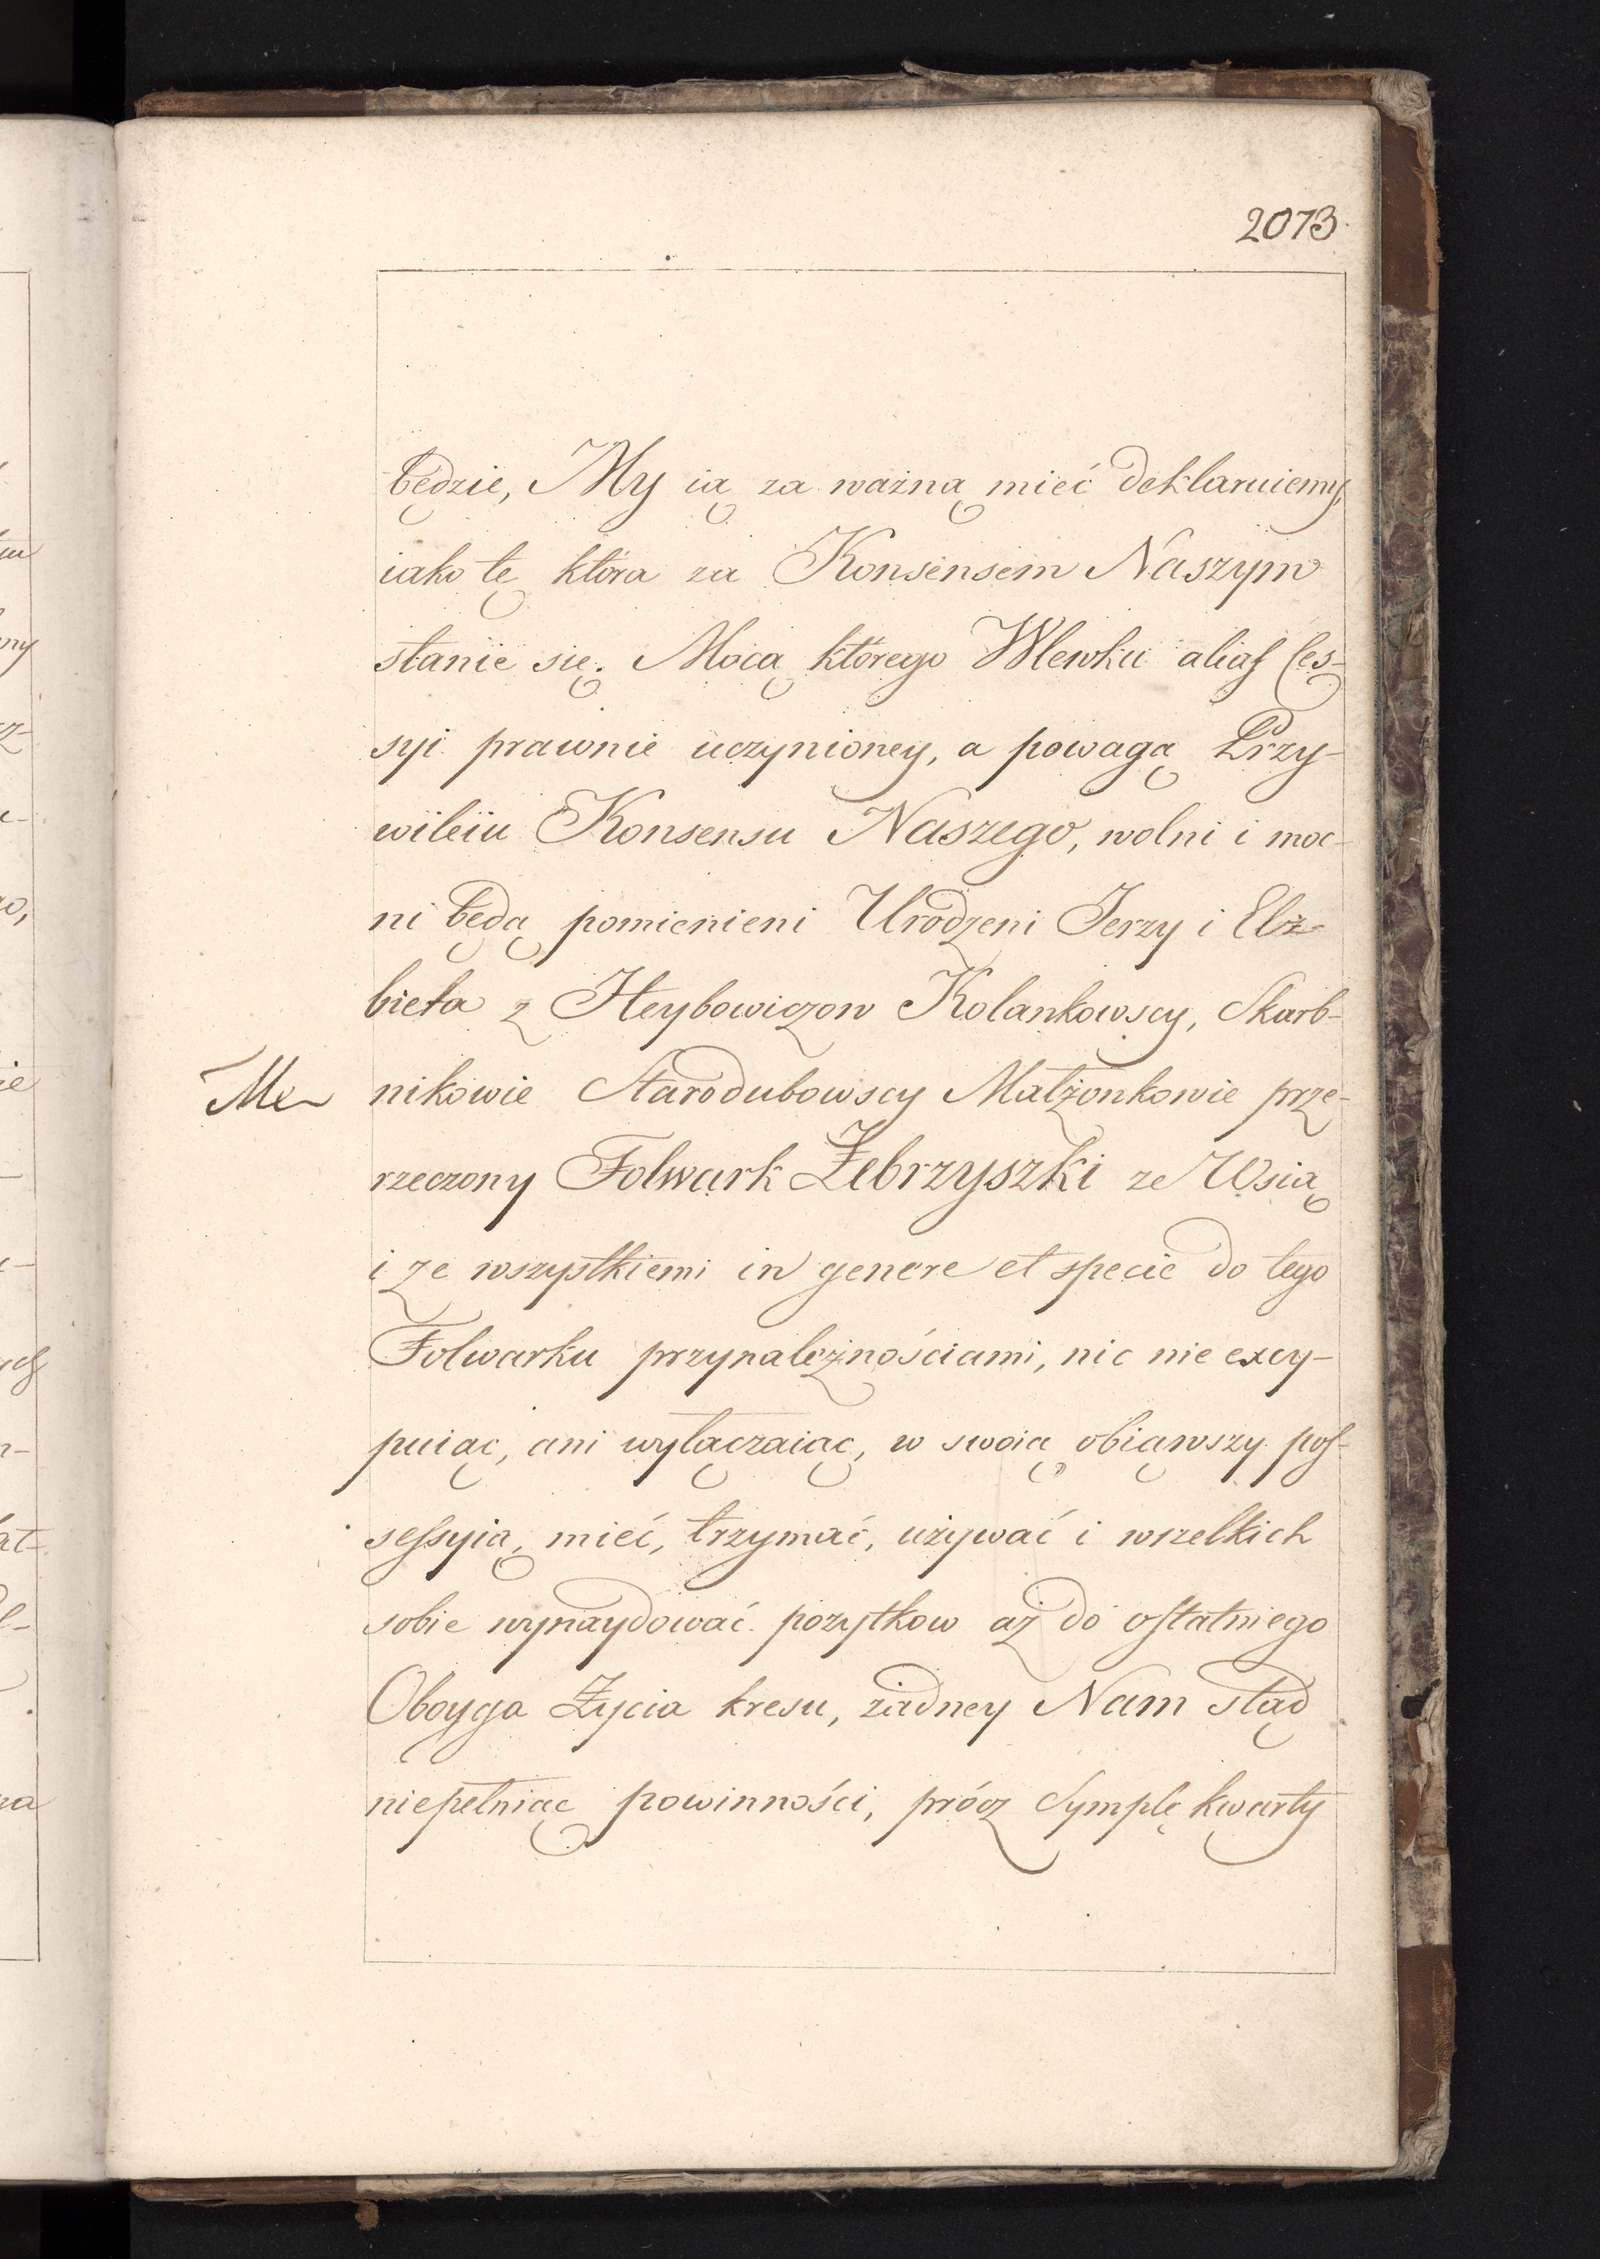 2073.
będzie, My ią za ważną mieć deklaruiemy,
iako tę która za Konsensem Naszym
stanie się. Mocą którego Wlewku alias Ces-
syi prawnie uczynioney, a powagą Przy-
wileiu Konsensu Naszego, wolni i moc-
ni będą pomienieni Urodzeni Jerzy i Elż-
bieta z Heybowiczow Kolankowscy, Skarb-
nikowie Starodubowscy Małżonkowie prze-
rzeczony Folwark Żebrzyszki ze Wsią
i ze wszystkiemi in genere et specie do tego
Folwarku przynależnościami, nic nie excy-
puiąc, ani wyłączaiąc, w swoią obiąwszy pos-
sessyią, mieć, trzymać, używać i wszelkich
sobie wynaydować pożytkow aż do ostatniego
Oboyga Życia kresu, żadney Nam stąd
niepełniąc powinności, prócz Symplę kwarty